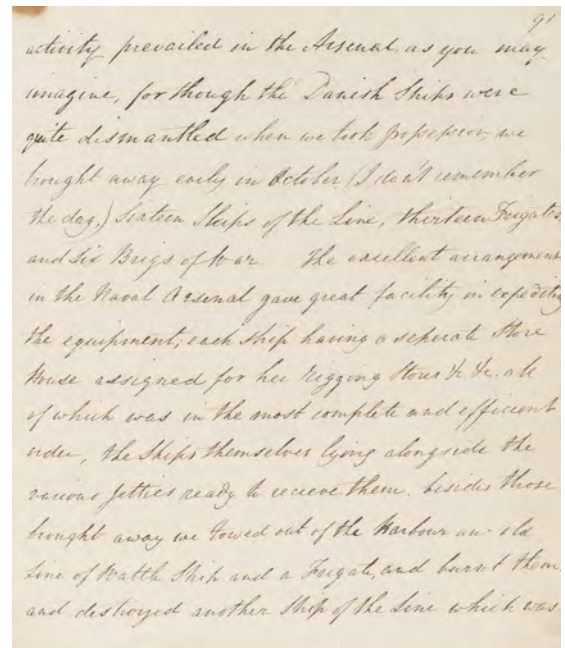 91
activity prevailed in the Arsenal, as you may
imagine, for though the Danish Ships were
quite dismantled when we took possession, we
brought away early in October (I don't remember
the day,) Sixteen Ships of the Line, thirteen Frigates,
and Six Brigs of War. The excellent arrangement
in the Naval Arsenal gave great facility in expediting
the equipment; each Ship having a seperate Store
House assigned for her rigging Stores &c &c. all
of which was in the most complete and efficient
order, the Ships themselves lying alongside the
various Jetties ready to recieve them. besides those
brought away we towed out of the Harbour an old
Line of Battle Ship and a Frigate, and burnt them
and destroyed another Ship of the Line which was